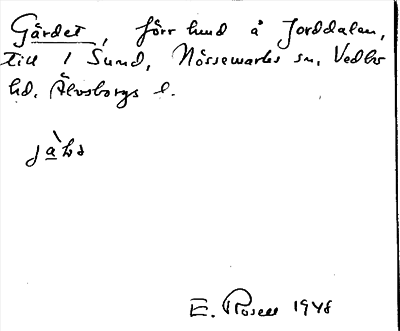 Gärdet, förr lund å Jorddalen,
till 1 Sund, Nössemarks sn, Vedbo
hd. Älvsborgs l.
E. Rosell 1948